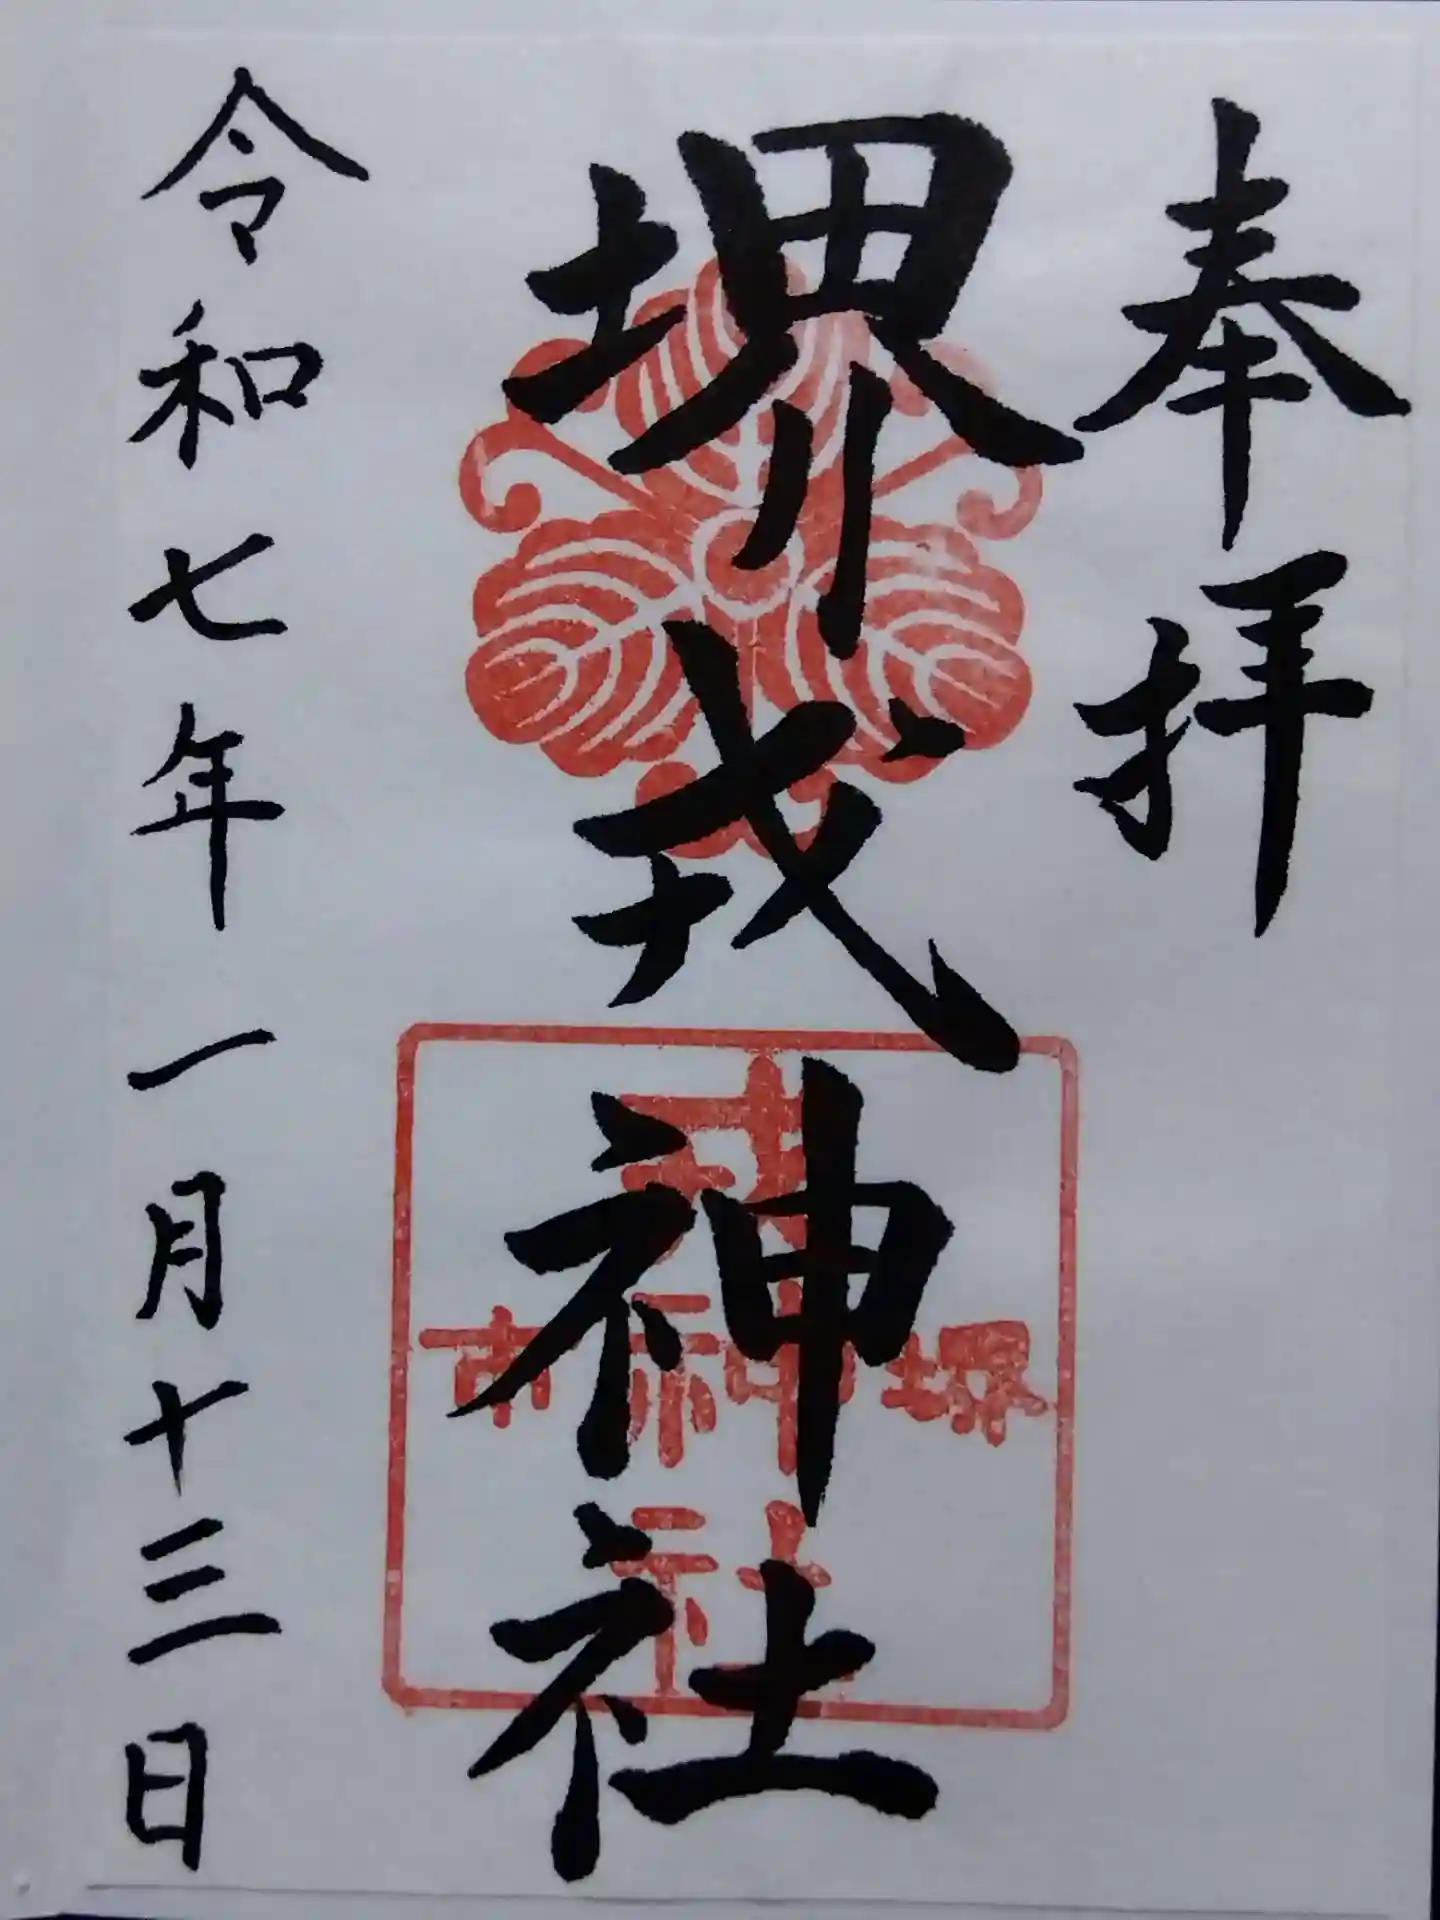 奉拝
堺戎神社
堺市
戎神社
令和七年一月十三日